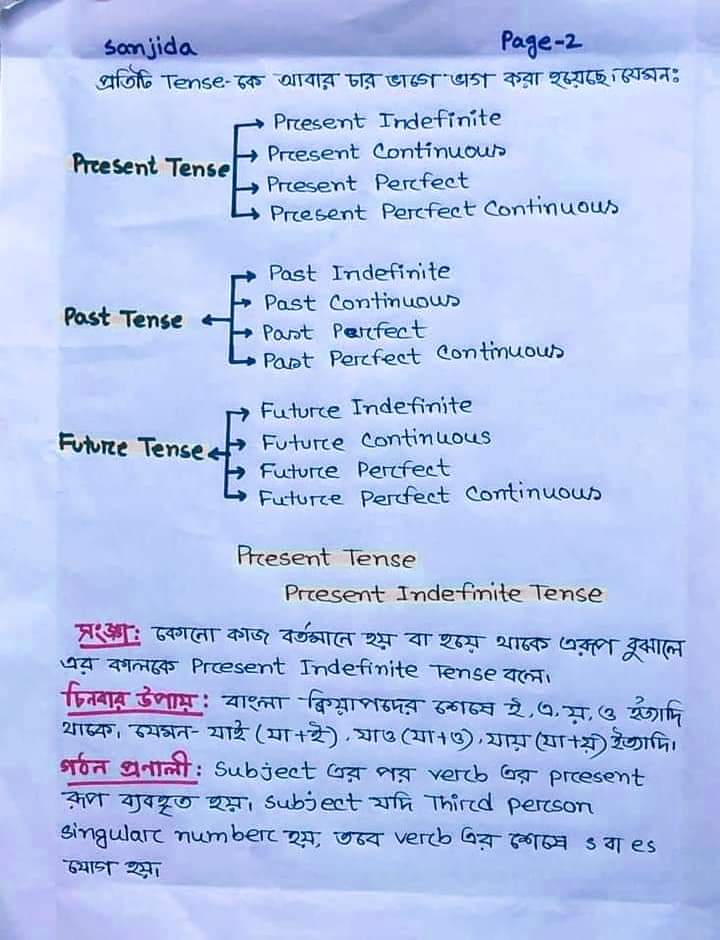 Sanjida Page-2
প্রতিটি Tense-কে আবার চার ভাগে ভাগ করা হয়েছে। যেমন:
Present Indefinite
Present Continuous
Present Tense
Present Perfect
Present Perfect Continuous
Past Indefinite
Past Continuous
Past Tense
Past Perfect
Past Perfect Continuous
Future Indefinite
Future Continuous
Future Tense
Future Perfect
Future Perfect Continuous
Present Tense
Present Indefinite Tense
সংজ্ঞা: কোনো কাজ বর্তমানে হয় বা হয়ে থাকে এরূপ বুঝালে
এর কালকে Present Indefinite Tense বলে।
চিনবার উপায়: বাংলা ক্রিয়াপদের শেষে ই, এ, য়, ও ইত্যাদি
থাকে। যেমন- যাই (যা+ই), যাও (যা+ও), যায় (যা+য়) ইত্যাদি।
গঠন প্রনালী: Subject এর পর verb এর present
রূপ ব্যবহৃত হয়। subject যদি Third person
singular number হয়, তবে verb এর শেষে s বা es
যোগ হয়।